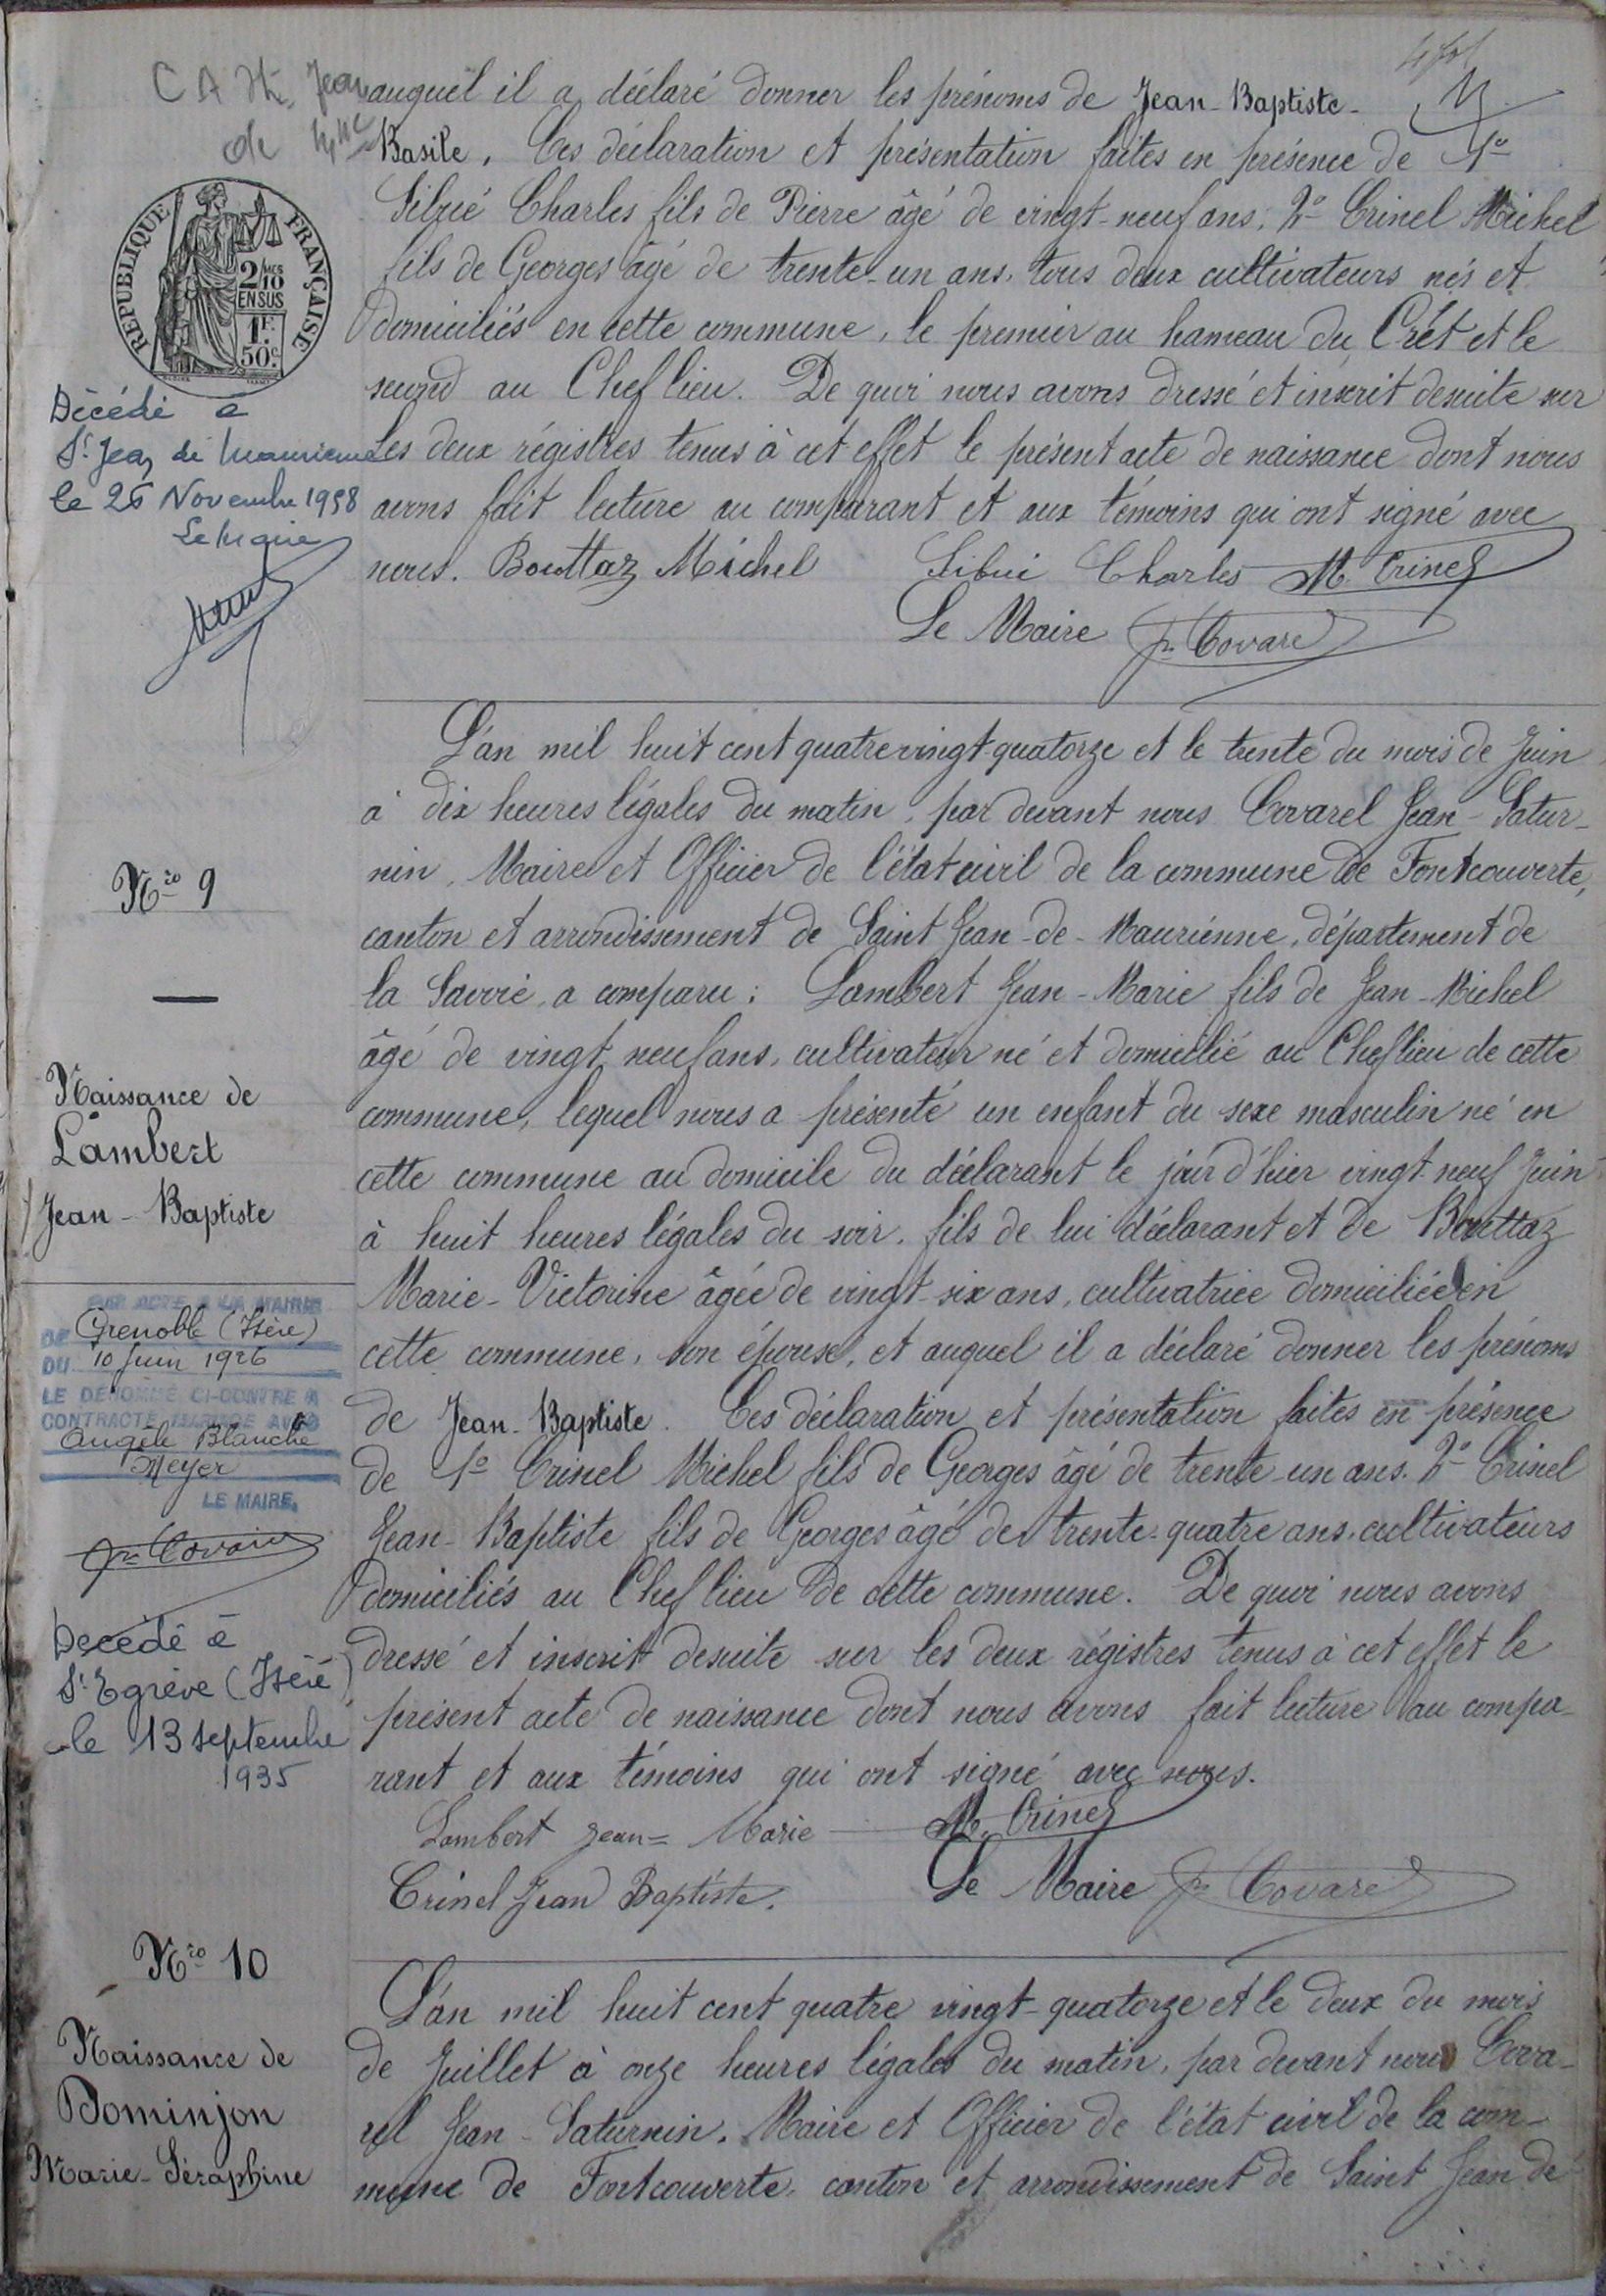 auquel il a déclaré donner les prénoms de Jean-Baptiste-
Basile. Ces déclaration et présentation faites en présence de 1°
Charles fils de Pierre âgé de vingt-neuf ans, 2° Crinel Michel
fils de Georges âgé de trente-un ans, tous deux cultivateurs nés et
domiciliés en cette commune, le premier au hameau du Crêt et le
second au Chef lieu. De quoi nous avons dressé et inscrit desuite sur
les deux régistres tenus à cet effet le présent acte de naissance dont nous
avons fait lecture au comparant et aux témoins qui ont signé avec
nous. Bouttaz Michel Charles M. Crinel
Le Maire Jn Covarel
REPUBLIQUE FRANÇAISE
2/10 EN SUS
1F. 50c.
Décédé à
St Jean de Maurienne
le 26 Novembre 1958
Le Maire
Nro 9
Naissance de
Lambert
Jean-Baptiste
L'an mil huit cent quatrevingt-quatorze et le trente du mois de Juin
à dix heures légales du matin, par devant nous Covarel Jean-Satur-
nin, Maire et Officier de l'état civil de la commune de Fontcouverte,
canton et arrondissement de Saint Jean-de-Maurienne, département de
la Savoie, a comparu: Lambert Jean-Marie fils de Jean-Michel
âgé de vingt neuf ans, cultivateur né et domicilié au Chef lieu de cette
commune, lequel nous a présenté un enfant du sexe masculin né en
cette commune au domicile du déclarant le jour d'hier vingt-neuf Juin
à huit heures légales du soir, fils de lui déclarant et de Bouttaz
Marie-Victorine âgée de vingt-six ans, cultivatrice domiciliée en
cette commune, son épouse, et auquel il a déclaré donner les prénoms
de Jean-Baptiste. Ces déclaration et présentation faites en présence
de 1° Crinel Michel fils de Georges âgé de trente-un ans. 2° Crinel
Jean-Baptiste fils de Georges âgé de trente-quatre ans, cultivateurs
domiciliés au Chef lieu de cette commune. De quoi nous avons
dressé et inscrit desuite sur les deux régistres tenus à cet effet le
présent acte de naissance dont nous avons fait lecture au compa-
rant et aux témoins qui ont signé avec nous.
Lambert Jean=Marie M. Crinel
Crinel Jean Baptiste. Le Maire Jn Covarel
PAR ACTE A LA MAIRIE
DE Grenoble (Isère)
DU 10 Juin 1926
LE DÉNOMMÉ CI-CONTRE A
CONTRACTÉ MARIAGE AVEC
Angèle Blanche
Meyer
LE MAIRE,
Jn Covarel
Decédé à
St Egrève (Isère)
le 13 septembre
1935
Nro 10
Naissance de
Dominjon
Marie-Séraphine
L'an mil huit cent quatre vingt-quatorze et le deux du mois
de Juillet à onze heures légales du matin, par devant nous Cova-
rel Jean-Saturnin, Maire et Officier de l'état civil de la com-
mune de Fontcouverte, canton et arrondissement de Saint Jean de